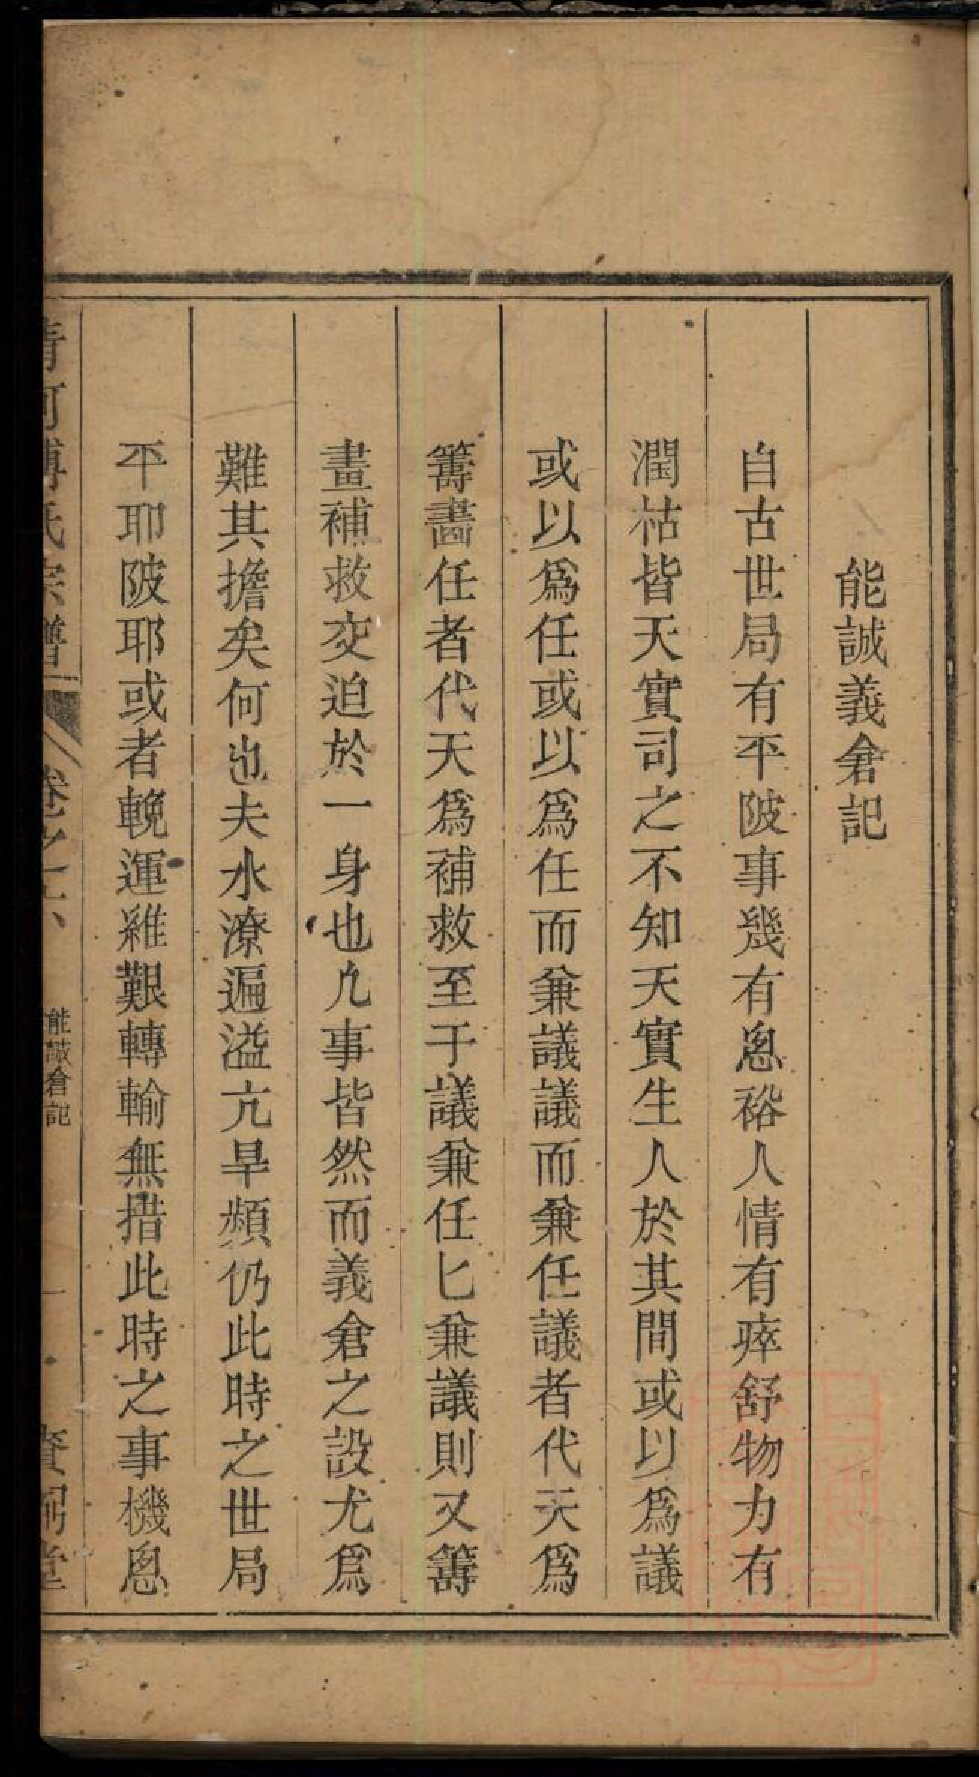 能誠義倉記
自古世局有平陂事幾有悤裕人情有瘁舒物力有
潤枯皆天實司之不知天實生人於其間或以爲議
或以爲任或以爲任而兼議議而兼任議者代天爲
籌畵任者代天爲補救至于議兼任匕兼議則又籌
畫補救交迫於一身也凢事皆然而義倉之設尤爲
難其擔矣何也夫水潦遍溢亢旱頻仍此時之世局
平耶陂耶或者輓運維艱轉輸無措此時之事機悤
清河傅氏宗譜
卷之六
能誠倉記
一
堂